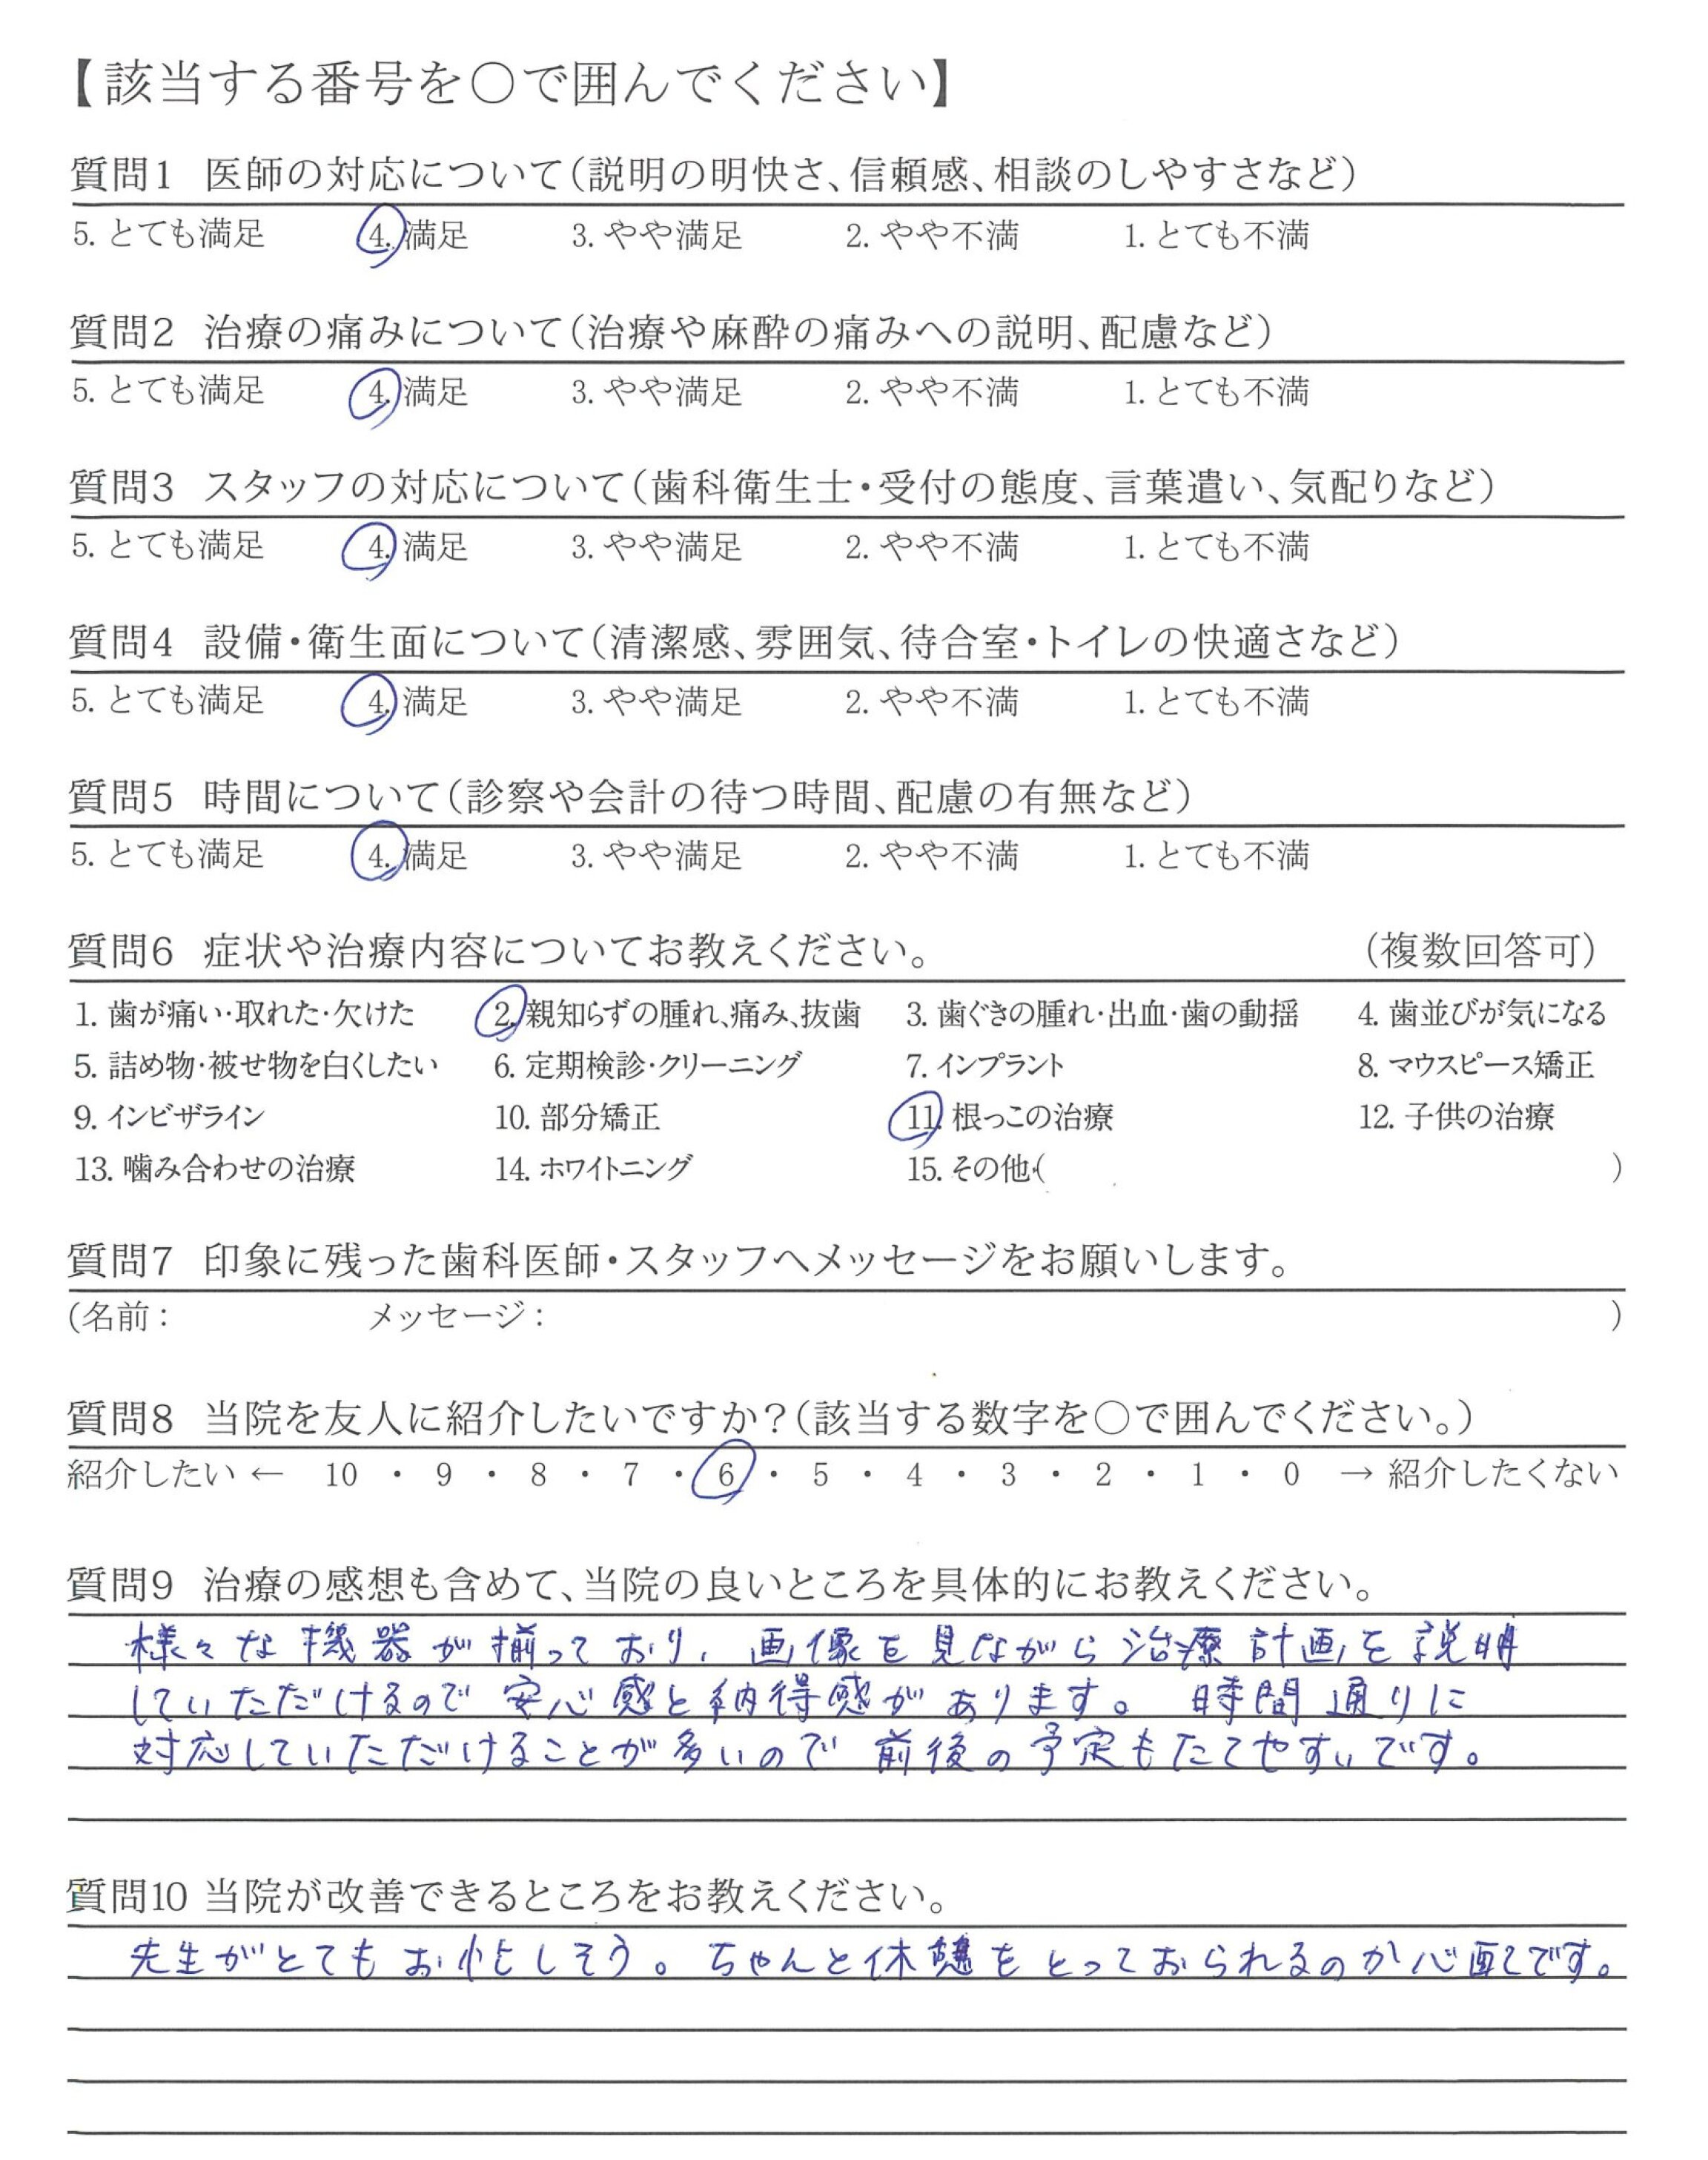 【該当する番号を○で囲んでください】
質問1 医師の対応について（説明の明快さ、信頼感、相談のしやすさなど）
5. とても満足 4. 満足 3. やや満足 2. やや不満 1. とても不満
質問2 治療の痛みについて（治療や麻酔の痛みへの説明、配慮など）
5. とても満足 4. 満足 3. やや満足 2. やや不満 1. とても不満
質問3 スタッフの対応について（歯科衛生士・受付の態度、言葉遣い、気配りなど）
5. とても満足 4. 満足 3. やや満足 2. やや不満 1. とても不満
質問4 設備・衛生面について（清潔感、雰囲気、待合室・トイレの快適さなど）
5. とても満足 4. 満足 3. やや満足 2. やや不満 1. とても不満
質問5 時間について（診察や会計の待つ時間、配慮の有無など）
5. とても満足 4. 満足 3. やや満足 2. やや不満 1. とても不満
質問6 症状や治療内容についてお教えください。 （複数回答可）
1. 歯が痛い・取れた・欠けた 2. 親知らずの腫れ、痛み、抜歯 3. 歯ぐきの腫れ・出血・歯の動揺 4. 歯並びが気になる
5. 詰め物・被せ物を白くしたい 6. 定期検診・クリーニング 7. インプラント 8. マウスピース矯正
9. インビザライン 10. 部分矯正 11. 根っこの治療 12. 子供の治療
13. 噛み合わせの治療 14. ホワイトニング 15. その他( )
質問7 印象に残った歯科医師・スタッフへメッセージをお願いします。
(名前： メッセージ： )
質問8 当院を友人に紹介したいですか？（該当する数字を○で囲んでください。）
紹介したい ← 10 ・ 9 ・ 8 ・ 7 ・ 6 ・ 5 ・ 4 ・ 3 ・ 2 ・ 1 ・ 0 → 紹介したくない
質問9 治療の感想も含めて、当院の良いところを具体的にお教えください。
様々な機器が揃っており、画像を見ながら治療計画を説明
していただけるので安心感と納得感があります。時間通りに
対応していただけることが多いので前後の予定もたてやすいです。
質問10 当院が改善できるところをお教えください。
先生がとてもお忙しそう。ちゃんと休憩をとっておられるのか心配です。